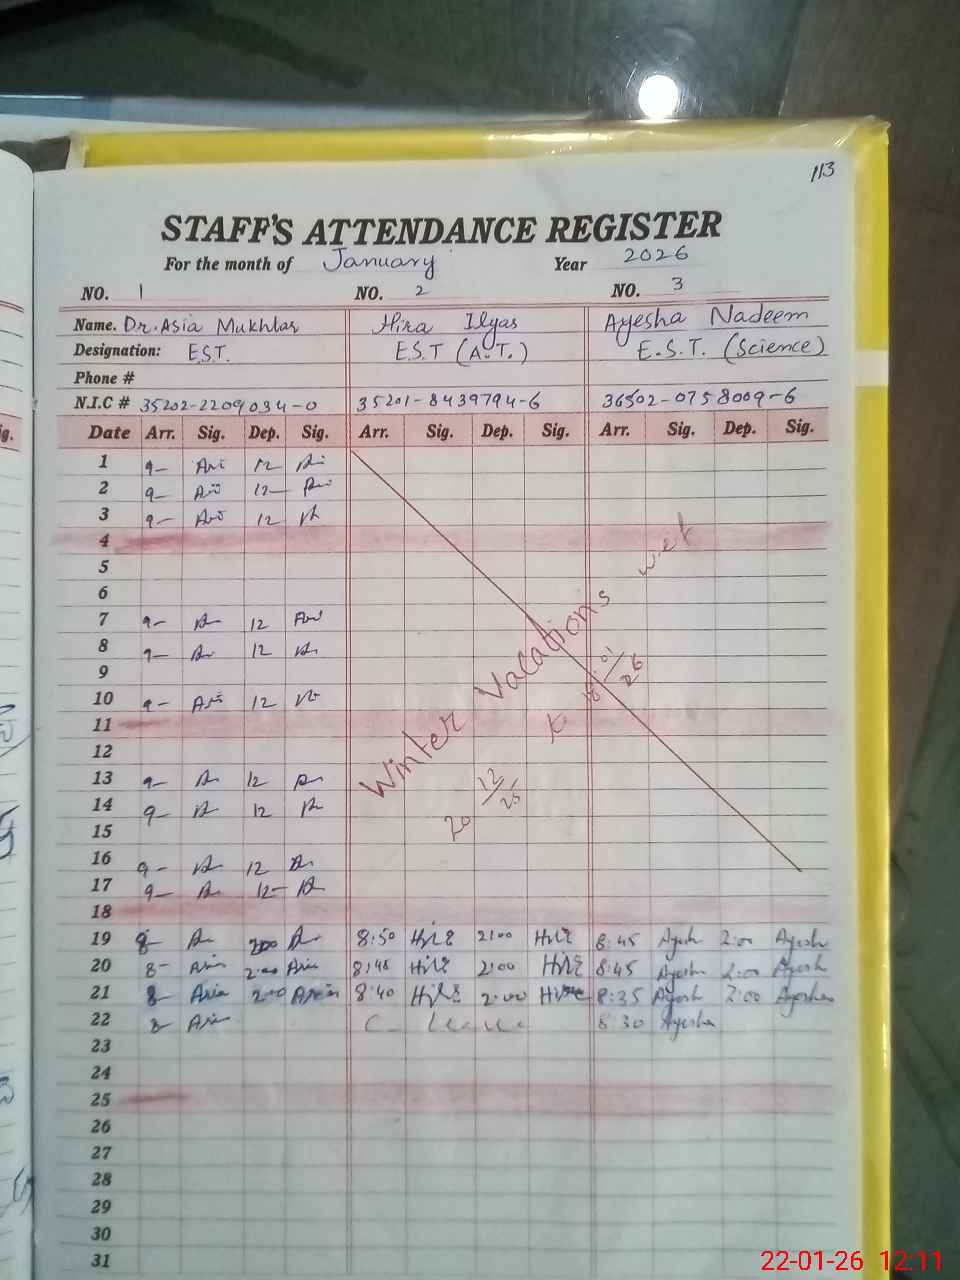 113
STAFF'S ATTENDANCE REGISTER
For the month of January Year 2026
NO. 1 NO. 2 NO. 3
Name. Dr. Asia Mukhtar Hira Ilyas Ayesha Nadeem
Designation: E.S.T. E.S.T (A.T.) E.S.T. (Science)
Phone #
N.I.C # 35202-2209034-0 35201-8439794-6 36502-0758009-6
Date Arr. Sig. Dep. Sig. Arr. Sig. Dep. Sig. Arr. Sig. Dep. Sig.
1 9- 12
2 9- 12-
3 9- 12
4
5
6
7 9- 12
8 9- 12
9
10 9- 12
11
12
13 9- 12
14 9- 12
15
16 9- 12
17 9- 12-
18
Winter Vacations w.e.f
20 12/25 to 18/01/26
19 8- 2:00 8:50 2:00 8:45 Ayesh 2:00 Ayesh
20 8- Asia 2:00 Asia 8:45 2:00 8:45 Ayesh 2:00 Ayesh
21 8- Asia 2:00 Asia 8:40 2:00 8:35 Ayesh 2:00 Ayesha
22 8- Asia C- Leave 8:30 Ayesha
23
24
25
26
27
28
29
30
31
22-01-26 12:11